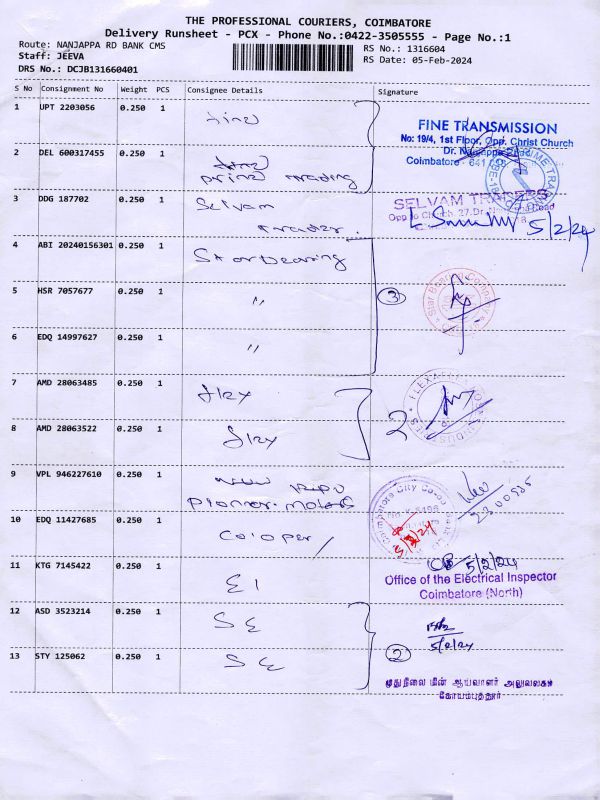 THE PROFESSIONAL COURIERS, COIMBATORE
Delivery Runsheet - PCX - Phone No.:0422-3505555 - Page No.:1
Route: NANJAPPA RD BANK CMS
RS No.: 1316604
Staff: JEEVA
RS Date: 05-Feb-2024
DRS No.: DCJB131660401
S No Consignment No Weight PCS Consignee Details Signature
1 UPT 2203056 0.250 1
FINE TRANSMISSION
No: 19/4, 1st Floor, Opp. Christ Church
Dr. Nanjappa Road
Coimbatore - 641
2 DEL 600317455 0.250 1
trading
3 DDG 187702 0.250 1 Selvam
trader.
SELVAM
5/2/24
4 ABI 20240156301 0.250 1 Star bearing
3
Star Bearing Company
5 HSR 7057677 0.250 1 "
6 EDQ 14997627 0.250 1 "
7 AMD 28063485 0.250 1
2
INDUSTRIES
8 AMD 28063522 0.250 1
9 VPL 946227610 0.250 1
motors
Coimbatore City Co-op
10 EDQ 11427685 0.250 1
11 KTG 7145422 0.250 1 E1
5/2/24
Office of the Electrical Inspector
Coimbatore (North)
12 ASD 3523214 0.250 1 SE
5/2/24
2
13 STY 125062 0.250 1 SE
முதுநிலை மின் ஆய்வாளர் அலுவலகம்
கோயம்புத்தூர்